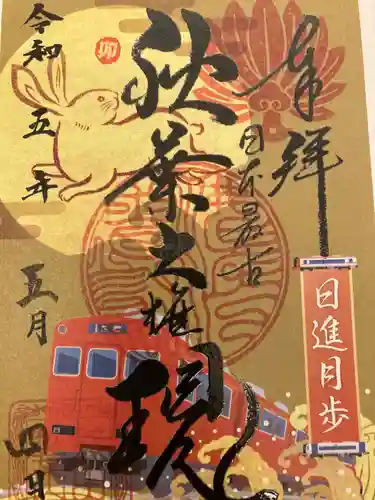 奉拝
日本最古
秋葉大権現
令和五年
五月
四日
卯
日進月歩